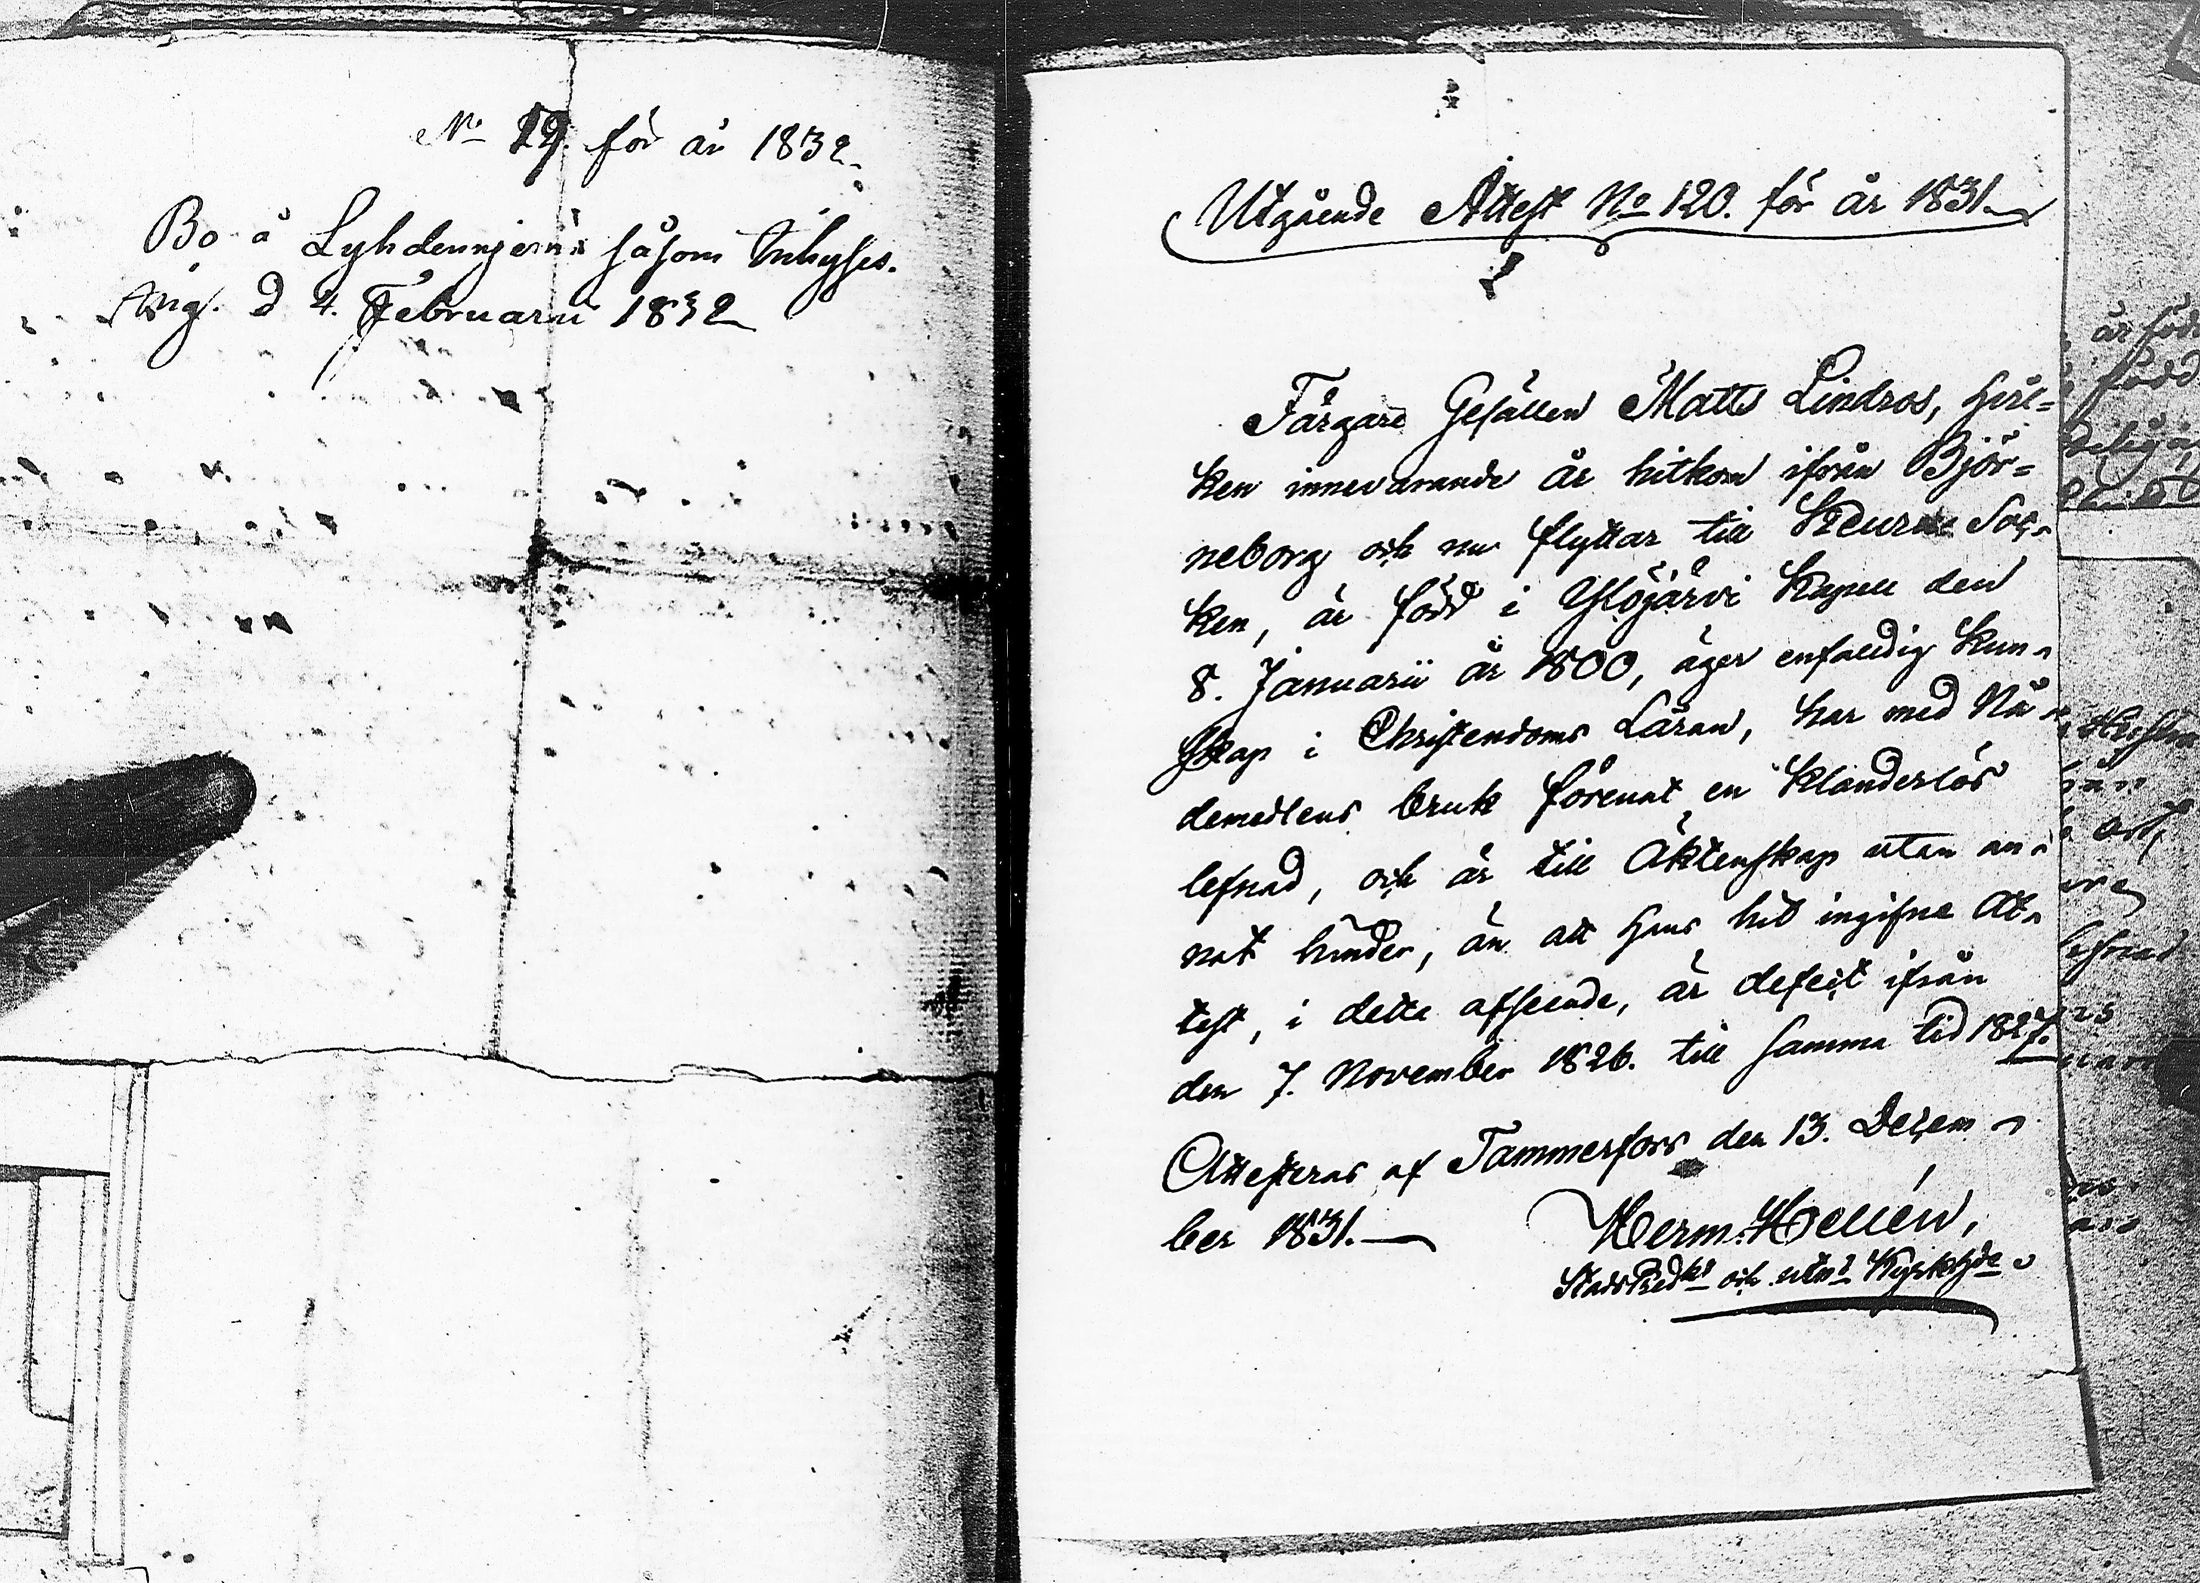 No 19. för år 1832.
Bo å Lyhdennjemi såsom Inhyses.
Wig. d 4. Februarii 1832
Utgående Attest No 120. för år 1831.
Färgare Gesällen Matts Lindros, hvil=
ken innevarande år hitkom ifrån Björ=
neborg och nu flyttar till Keuru Soc-
ken, är född i Ylöjärvi Kapell den
8. Januarii år 1800, äger enfaldig kun-
skap i Christendoms Läran, har med Nå-
demedlens bruk förenat en klanderlös
lefnad, och är till Äktenskap utan an-
nat hinder, än att hans hit ingifne At-
test, i detta afseende, är defect ifrån
den 7. November 1826. till samma tid 1827.
Attesteras af Tammerfors den 13. Decem-
ber 1831.
Herm. Hellén,
StadsPred och Kyrkohde
är född
född
lefnad